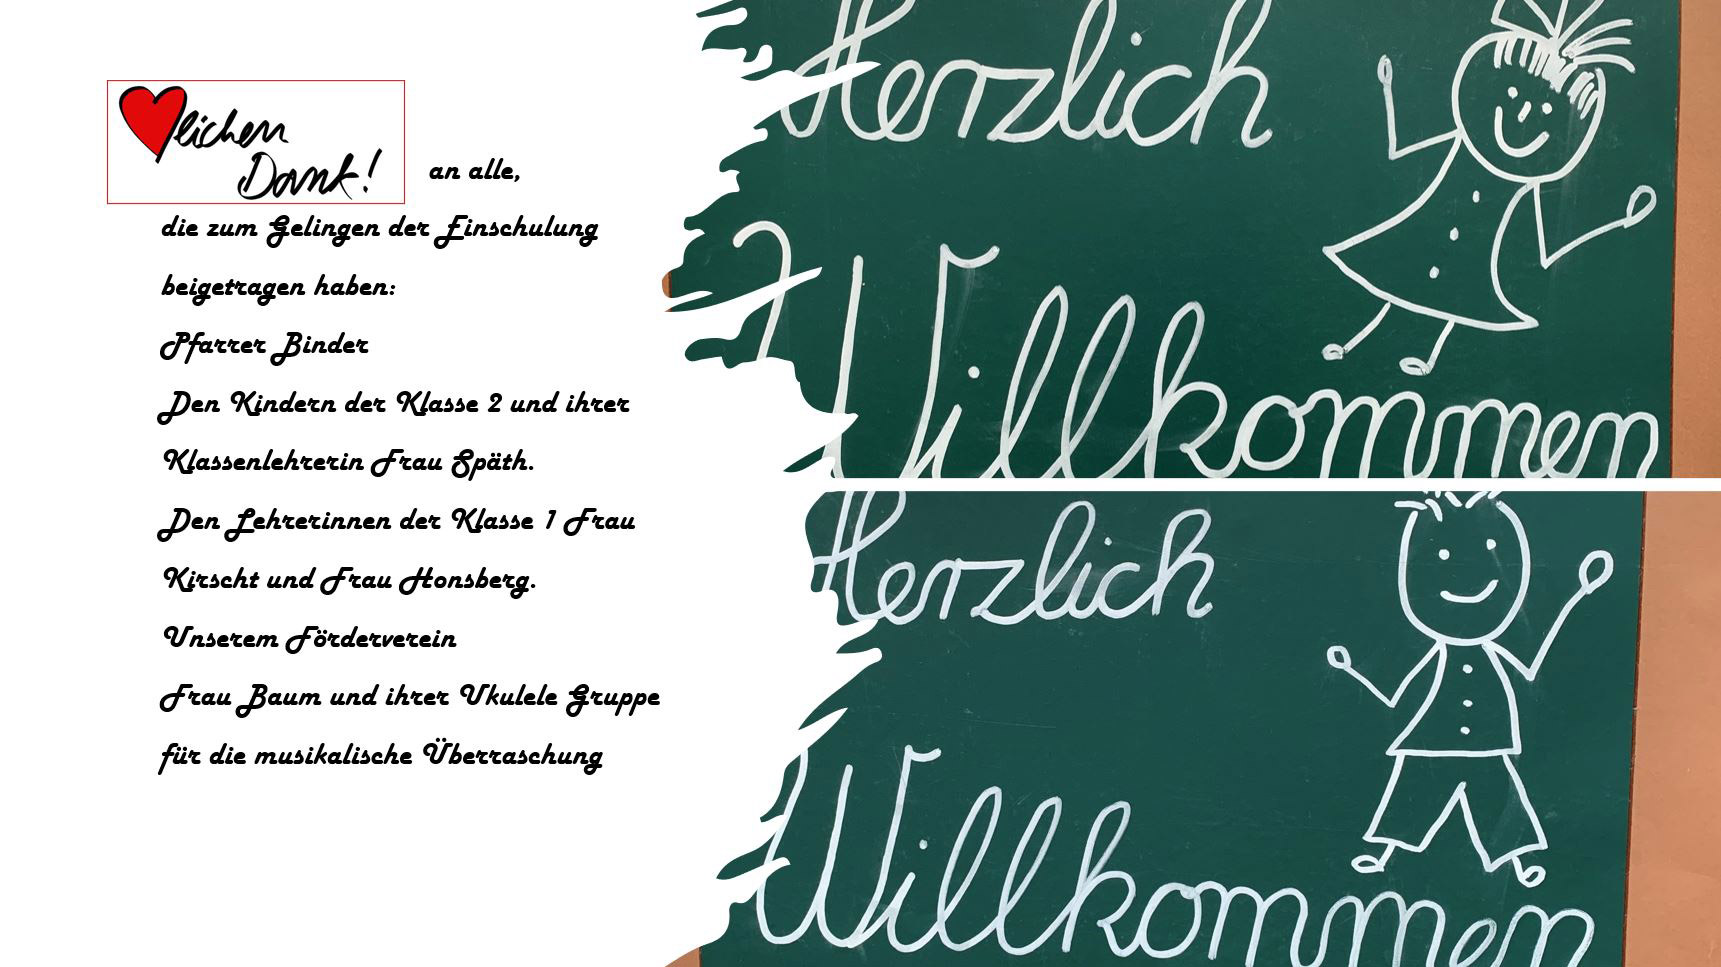 lichen
Dank!
an alle,
die zum Gelingen der Einschulung
beigetragen haben:
Pfarrer Binder
Den Kindern der Klasse 2 und ihrer
Klassenlehrerin Frau Späth.
Den Lehrerinnen der Klasse 1 Frau
Kirscht und Frau Honsberg.
Unserem Förderverein
Frau Baum und ihrer Ukulele Gruppe
für die musikalische Überraschung
Herzlich
Willkommen
Herzlich
Willkommen